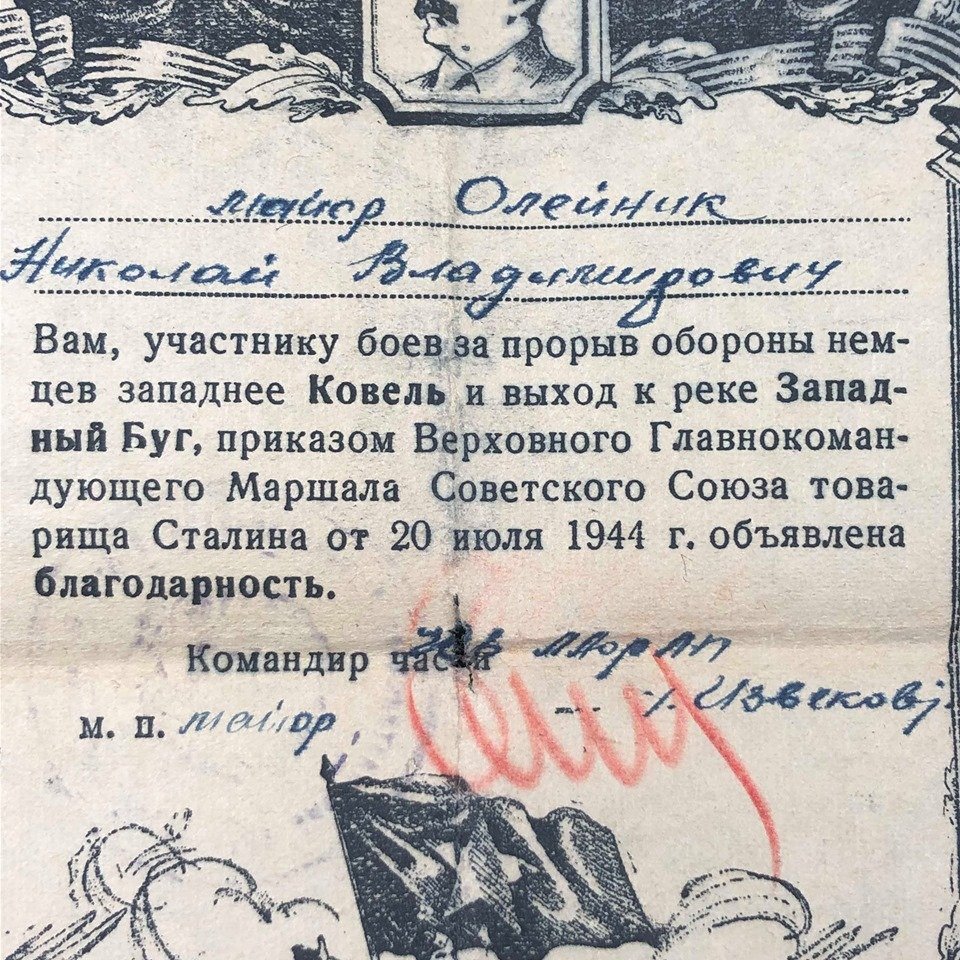 майор Олейник
Николай Владимирович
Вам, участнику боев за прорыв обороны нем-
цев западнее Ковель и выход к реке Запад-
ный Буг, приказом Верховного Главнокоман-
дующего Маршала Советского Союза това-
рища Сталина от 20 июля 1944 г. объявлена
благодарность.
Командир части
м. п. майор /Извеков/.